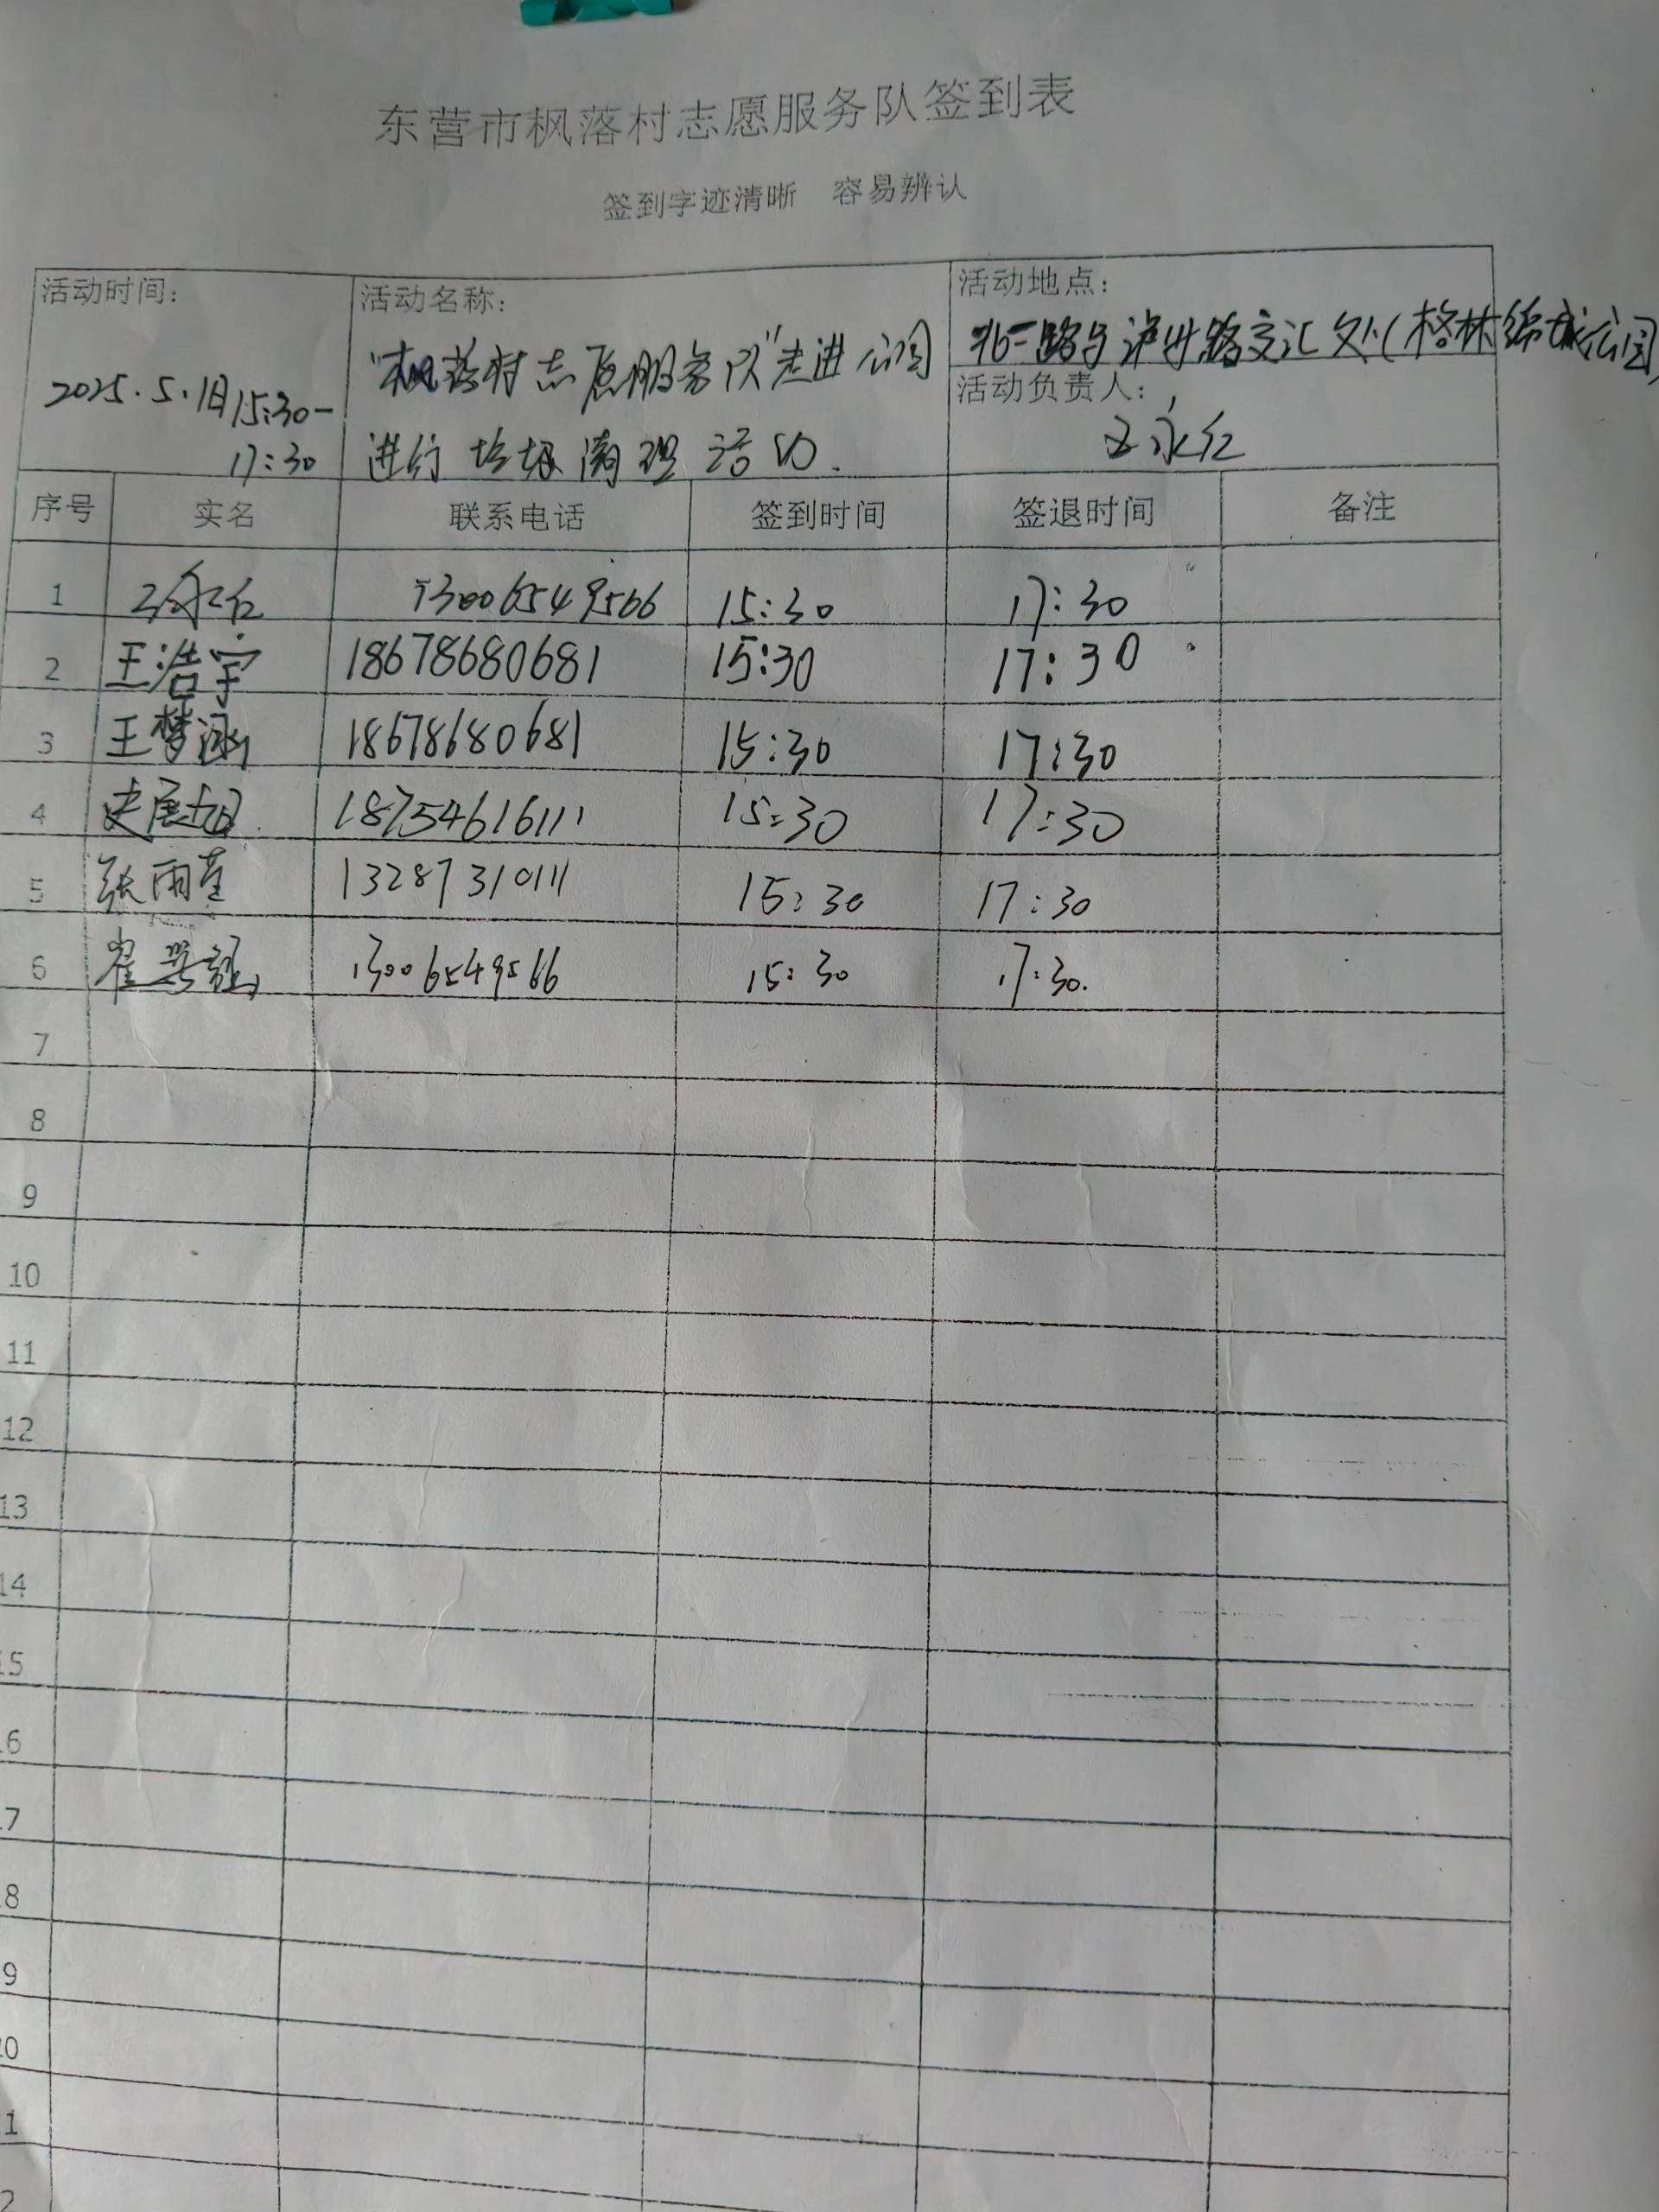 东营市枫落村志愿服务队签到表
签到字迹清晰 容易辨认
活动时间: 活动名称: 活动地点:
2025.5.1日15:30-17:30
"枫落村志愿服务队"走进公园
进行垃圾清理活动.
北一路与 路交汇处(格林绿城公园)
活动负责人:
王永红
序号 实名 联系电话 签到时间 签退时间 备注
1 王永红 13006549566 15:30 17:30
2 王浩宇 18678680681 15:30 17:30
3 王梦涵 18678680681 15:30 17:30
4 史展旭 18754616111 15:30 17:30
5 张雨萱 13287310111 15:30 17:30
6 崔 13006549566 15:30 17:30.
7
8
9
10
11
12
13
14
15
16
17
18
19
20
1
2